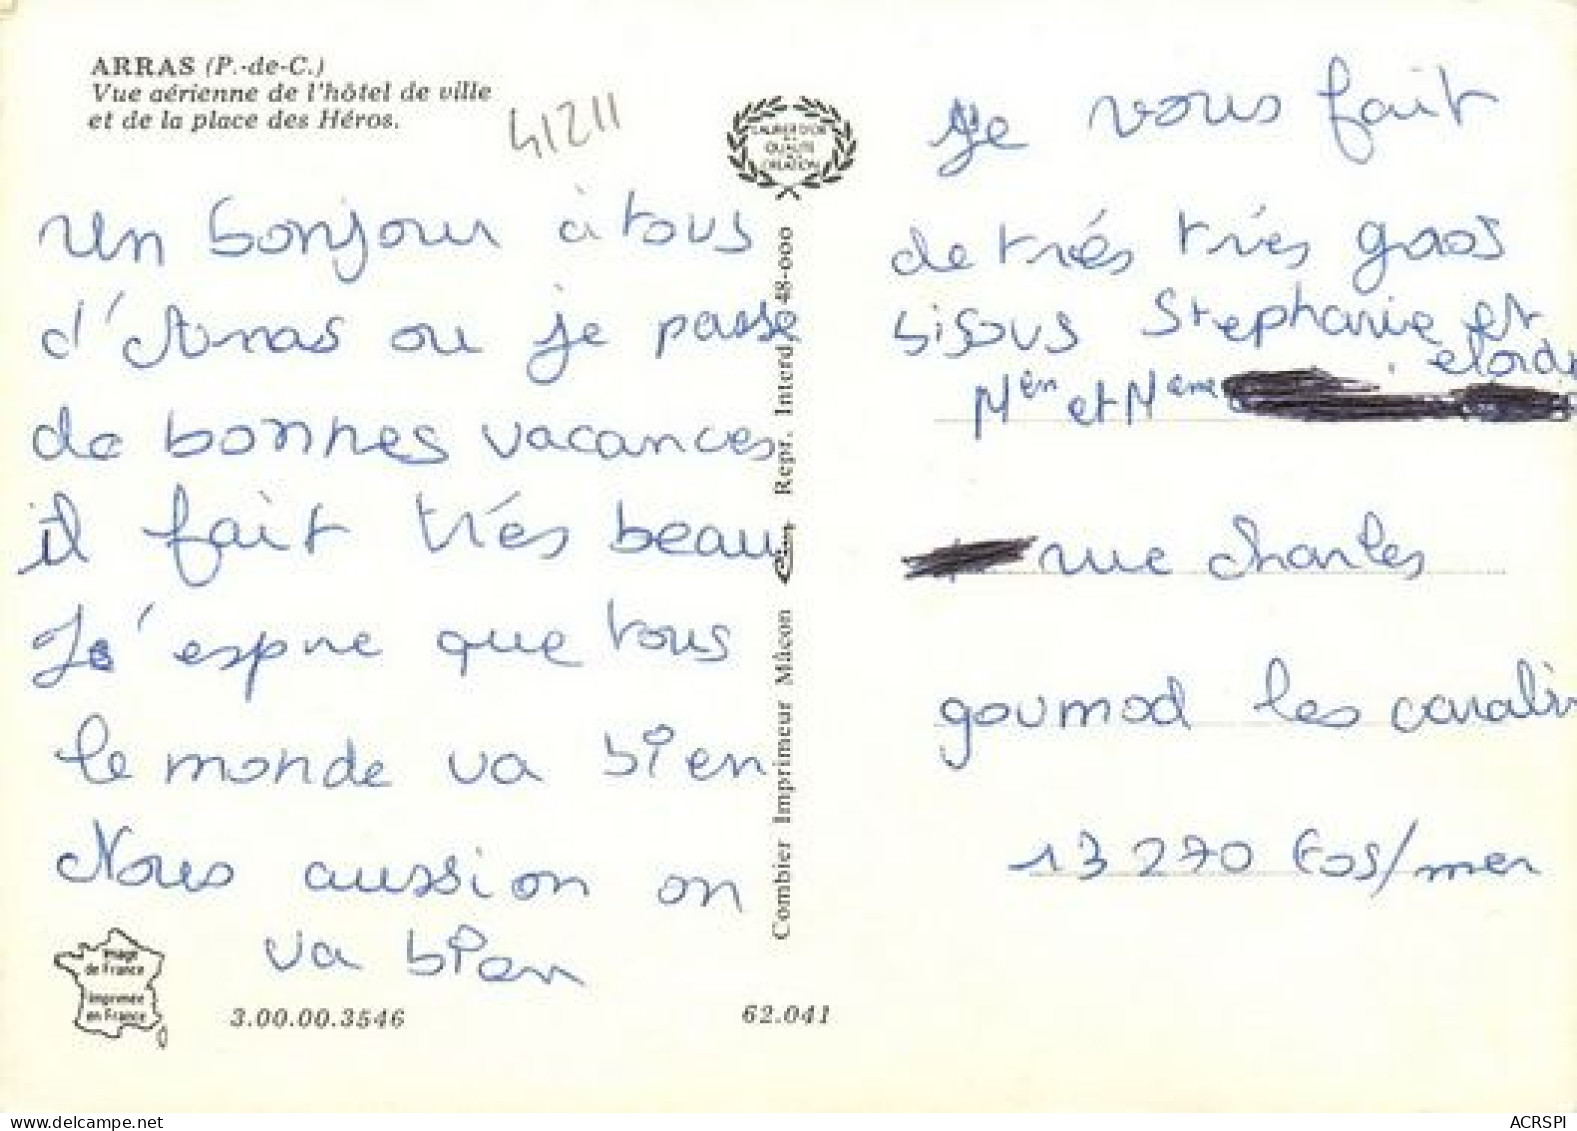 ARRAS (P.-de-C.)
Vue aérienne de l'hôtel de ville
et de la place des Héros.
41211
LAURIER D'OR
QUALITÉ
CRÉATION
Un bonjour à tous
d'Arras ou je passe
de bonnes vacances
il fait trés beau
Je' espre que tous
le monde va bien
Nous aussi on on
va bien
Image
de France
imprimée
en France
3.00.00.3546
62.041
Combier Imprimeur Mâcon
Repr. Interd. 48-000
Je vous fait
de trés trés gros
bisous Stephanie et
et
rue Charles
goumod les
13270 Fos/mer
ACRSPI